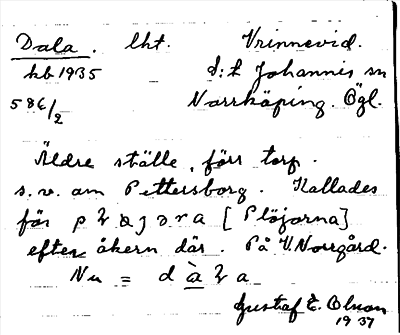 Dala. lht. Vrinnevid.
kb 1935 S:t Johannis sn
586/2 Norrköping. Ögl.
Äldre ställe, förr torp.
s.v. om Pettersborg. Kallades
för [Plöjorna]
efter åkern där. På V. Norrgård.
Nu = d à ɫ a
Gustaf E. Olsson
1937